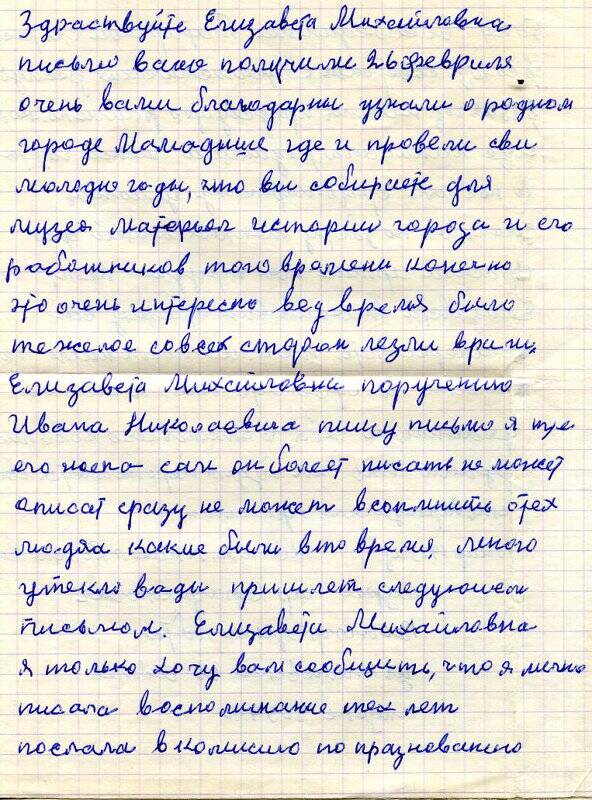 Здраствуйте Елизавета Михайловна
письмо ваше получили 26 февраля
очень вами благодарны узнали о родном
городе Мамадыше где и провели сви
молоды годы, что вы собираете для
музея матерьял истории города и его
работников того времени конечно
это очень интересно вед время было
тежелое совсех сторон лезли враги,
Елизавета Михайловна поручению
Ивана Николаевича пишу письмо я
его жена сам он болеет писать не может
описат сразу не может вспомнить отех
людях какие были вто время, много
утекло вады пришлет следующем
письмом. Елизавета Михайловна
я только хочу вам сообщить, что я лично
писала воспоминание тех лет
послала в комисию по празнованию